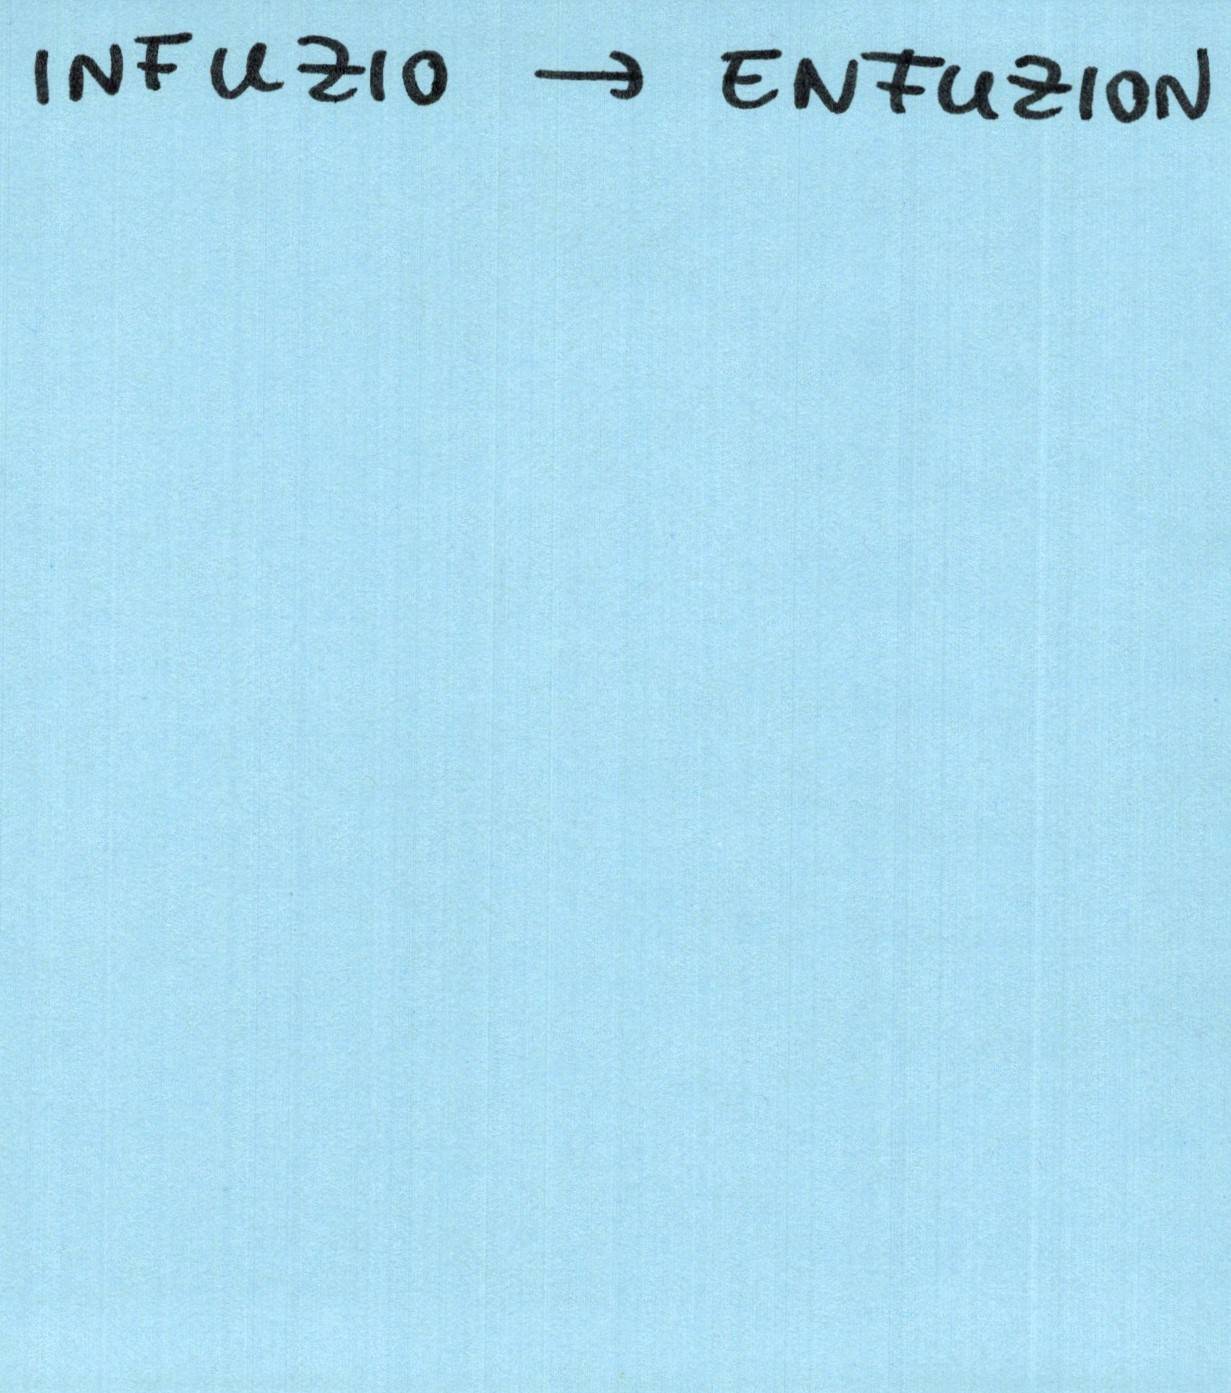 INFUZIO → ENFUZION